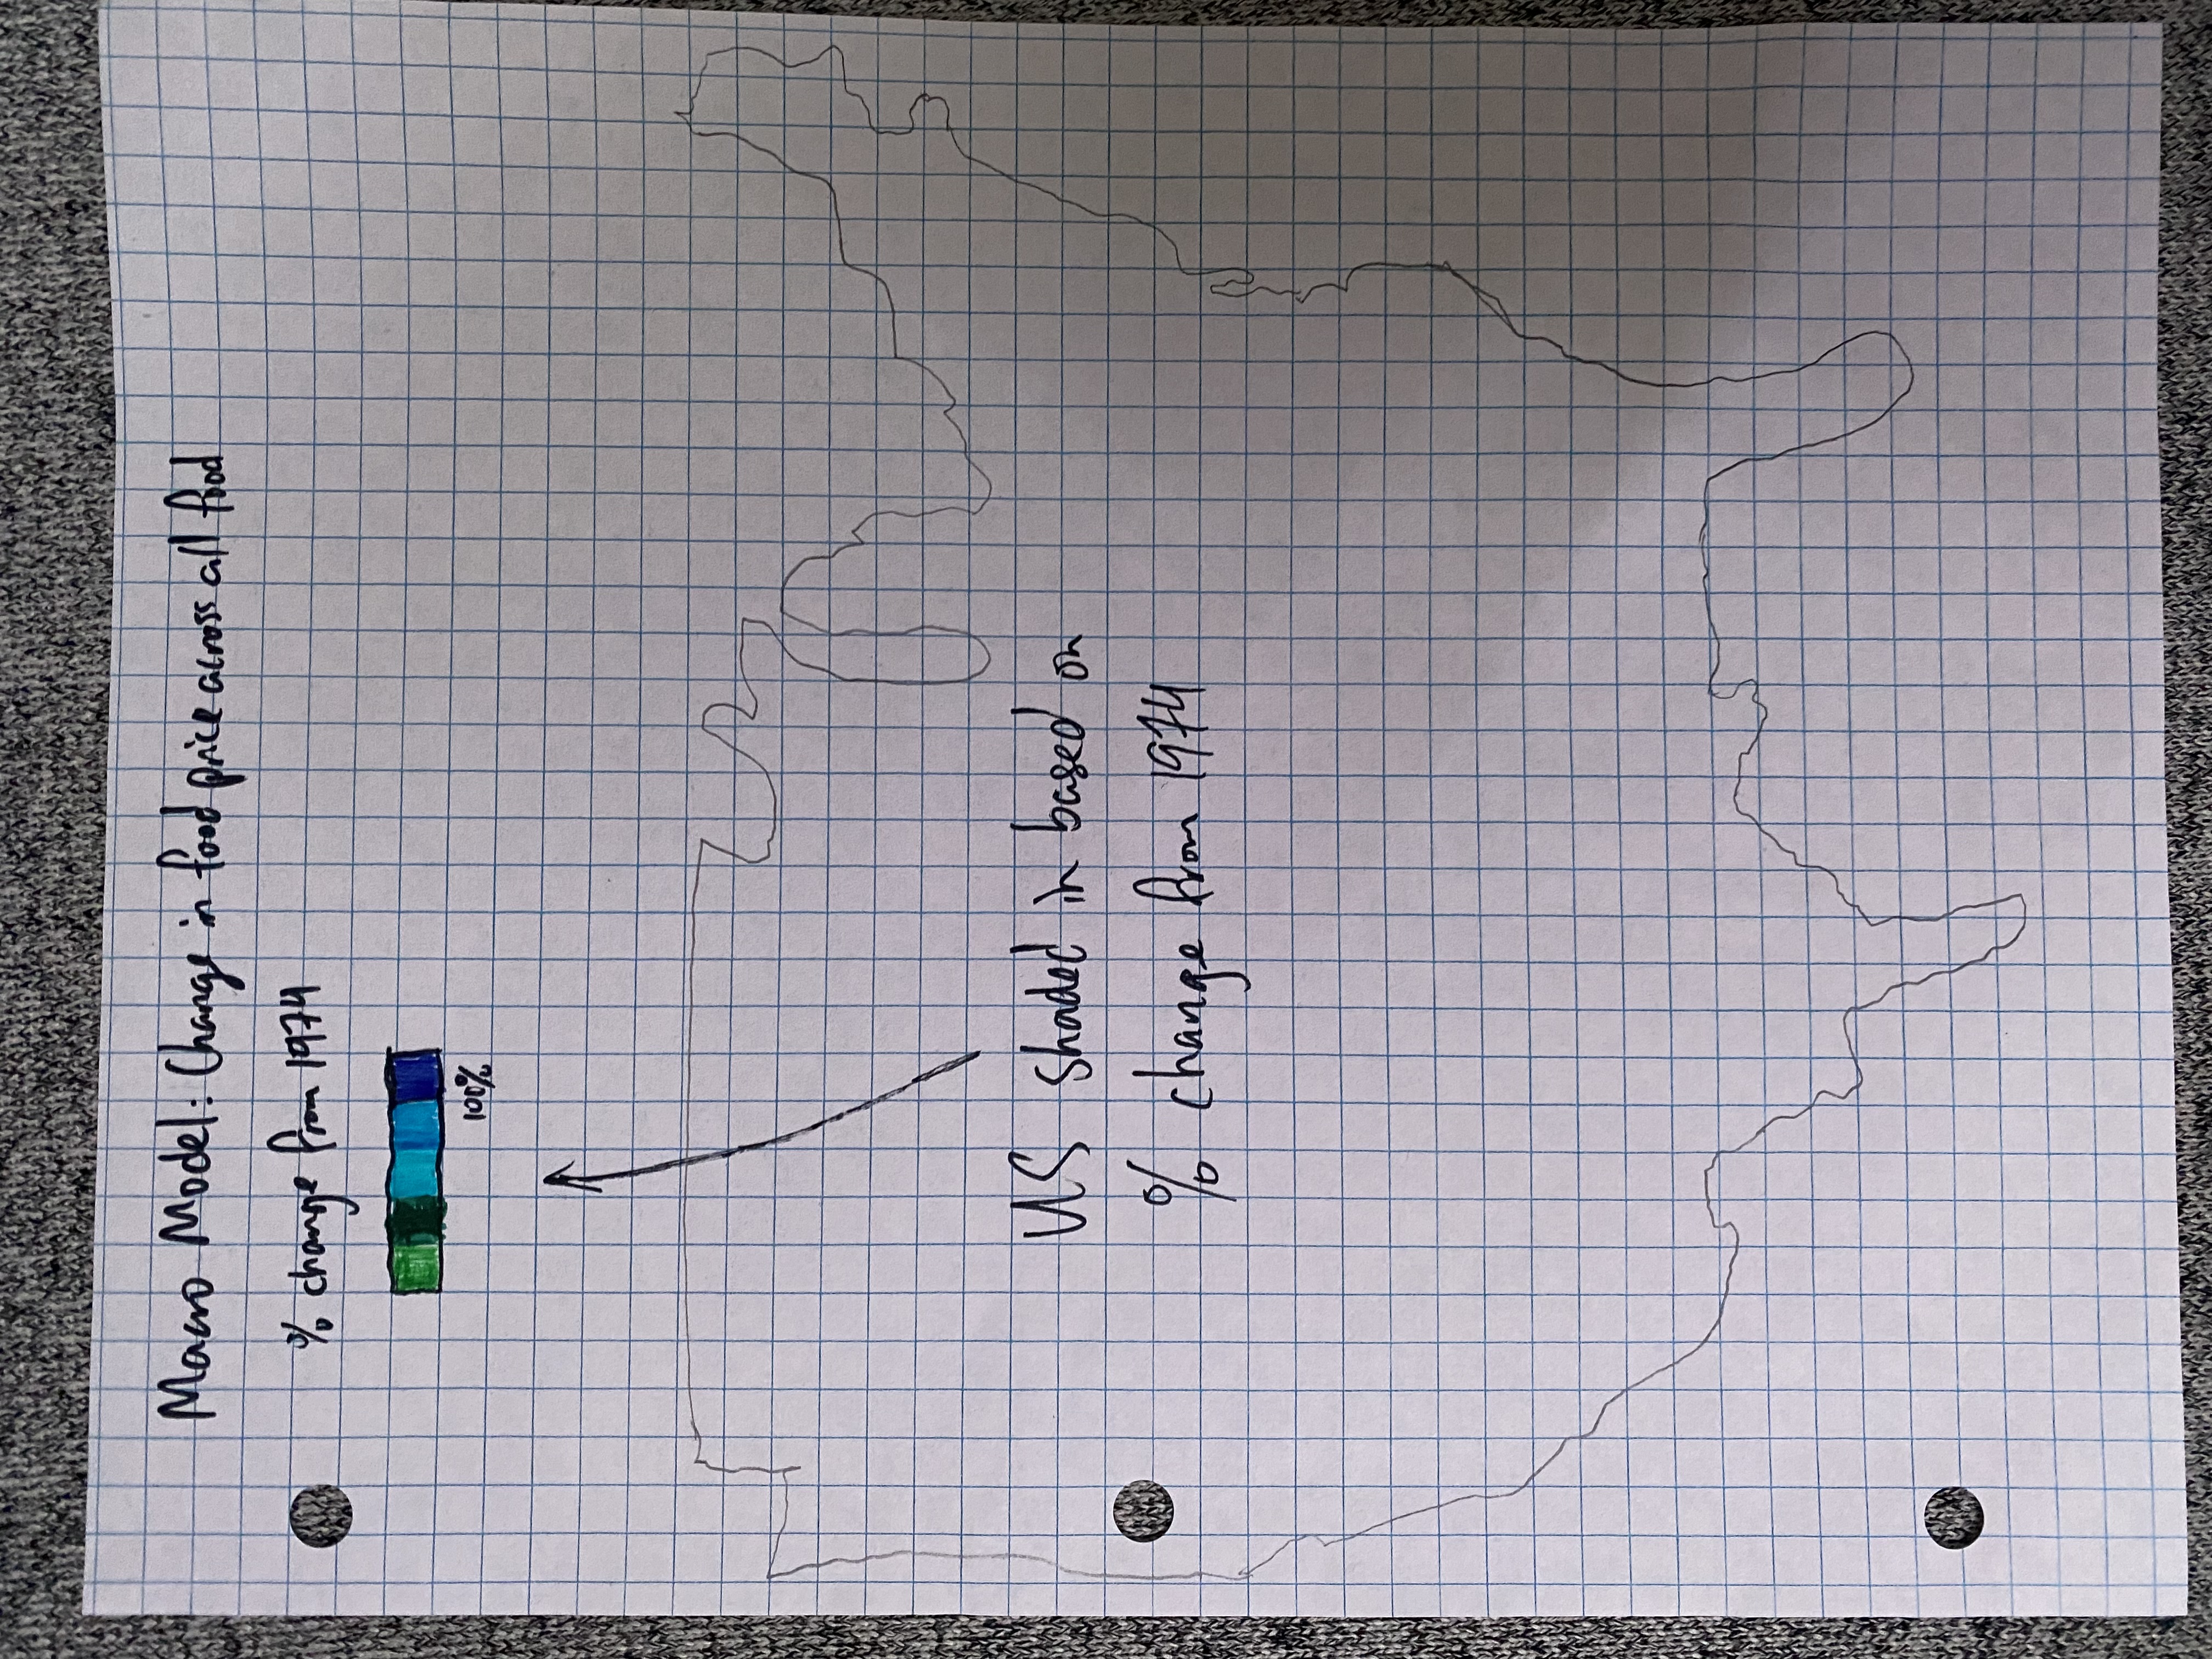 Macro Model: Change in food price across all food
% change from 1974
100%
US shaded in based on
% change from 1974